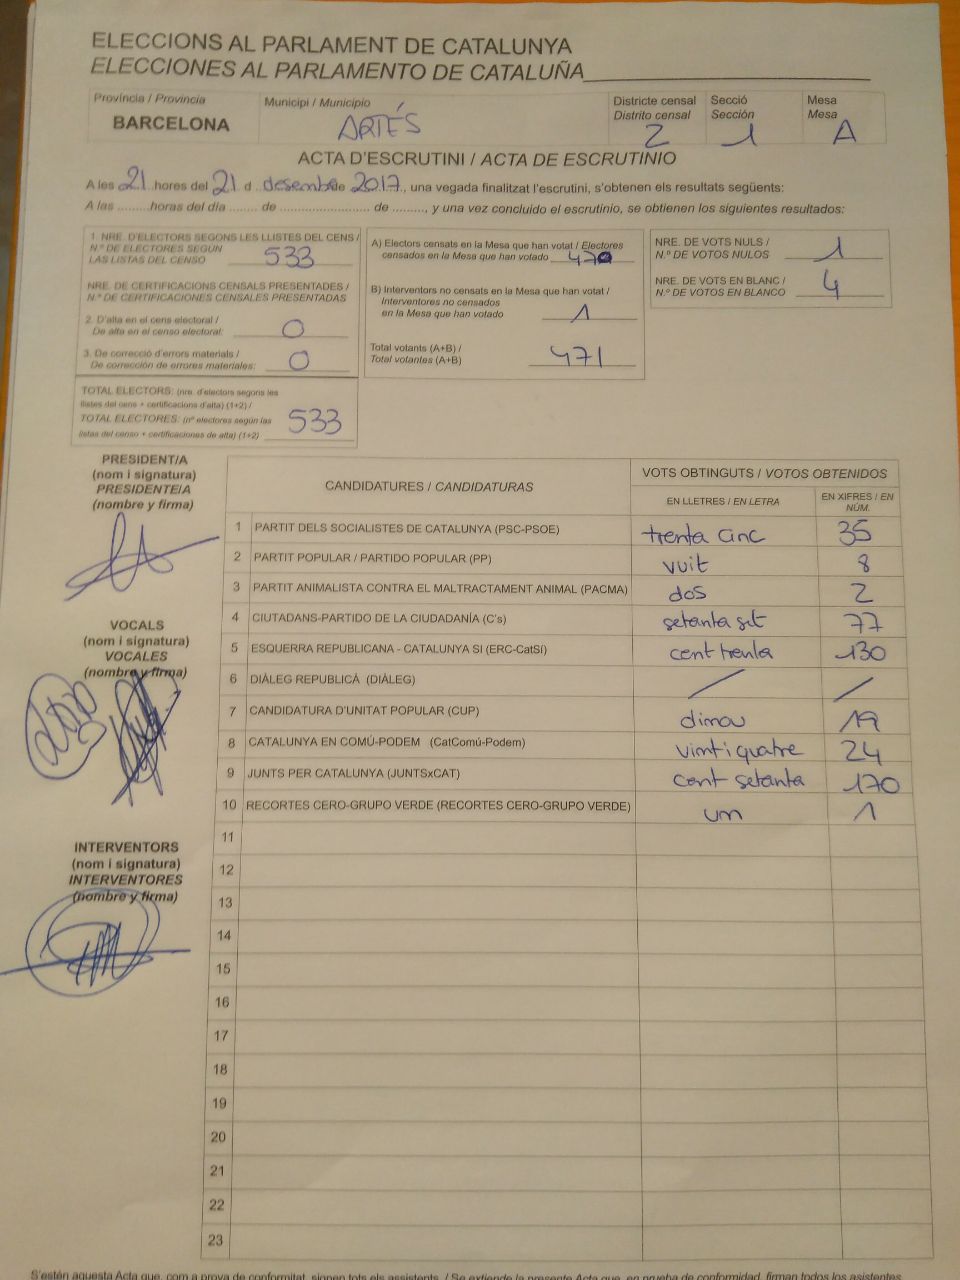 ELECCIONS AL PARLAMENT DE CATALUNYA
ELECCIONES AL PARLAMENTO DE CATALUÑA
Província / Provincia
BARCELONA
Municipi / Municipio
ARTÉS
Districte censal
Distrito censal
2
Secció
Sección
1
Mesa
Mesa
A
ACTA D'ESCRUTINI / ACTA DE ESCRUTINIO
A les 21 hores del 21 d desembre de 2017, una vegada finalitzat l'escrutini, s'obtenen els resultats següents:
A las .........horas del día ........ de ....................... de ........., y una vez concluido el escrutinio, se obtienen los siguientes resultados:
1. NRE. D'ELECTORS SEGONS LES LLISTES DEL CENS /
N.º DE ELECTORES SEGÚN
LAS LISTAS DEL CENSO 533
NRE. DE CERTIFICACIONS CENSALS PRESENTADES /
N.º DE CERTIFICACIONES CENSALES PRESENTADAS
2. D'alta en el cens electoral /
De alta en el censo electoral: 0
3. De correcció d'errors materials /
De corrección de errores materiales: 0
TOTAL ELECTORS: (nre. d'electors segons les
llistes del cens + certificacions d'alta) (1+2) /
TOTAL ELECTORES: (nº electores según las
listas del censo + certificaciones de alta) (1+2) 533
A) Electors censats en la Mesa que han votat / Electores
censados en la Mesa que han votado 470
B) Interventors no censats en la Mesa que han votat /
Interventores no censados
en la Mesa que han votado 1
Total votants (A+B) /
Total votantes (A+B) 471
NRE. DE VOTS NULS /
N.º DE VOTOS NULOS 1
NRE. DE VOTS EN BLANC /
N.º DE VOTOS EN BLANCO 4
PRESIDENT/A
(nom i signatura)
PRESIDENTE/A
(nombre y firma)
VOCALS
(nom i signatura)
VOCALES
(nombre y firma)
INTERVENTORS
(nom i signatura)
INTERVENTORES
(nombre y firma)
CANDIDATURES / CANDIDATURAS
VOTS OBTINGUTS / VOTOS OBTENIDOS
EN LLETRES / EN LETRA
EN XIFRES / EN NÚM.
1 PARTIT DELS SOCIALISTES DE CATALUNYA (PSC-PSOE) trenta cinc 35
2 PARTIT POPULAR / PARTIDO POPULAR (PP) vuit 8
3 PARTIT ANIMALISTA CONTRA EL MALTRACTAMENT ANIMAL (PACMA) dos 2
4 CIUTADANS-PARTIDO DE LA CIUDADANÍA (C's) setanta set 77
5 ESQUERRA REPUBLICANA - CATALUNYA SI (ERC-CatSí) cent trenta 130
6 DIÀLEG REPUBLICÀ (DIÀLEG) / /
7 CANDIDATURA D'UNITAT POPULAR (CUP) dinou 19
8 CATALUNYA EN COMÚ-PODEM (CatComú-Podem) vint i quatre 24
9 JUNTS PER CATALUNYA (JUNTSxCAT) cent setanta 170
10 RECORTES CERO-GRUPO VERDE (RECORTES CERO-GRUPO VERDE) un 1
11
12
13
14
15
16
17
18
19
20
21
22
23
S'estén aquesta Acta que, com a prova de conformitat, signen tots els assistents. / Se extiende la presente Acta que, en prueba de conformidad, firman todos los asistentes.